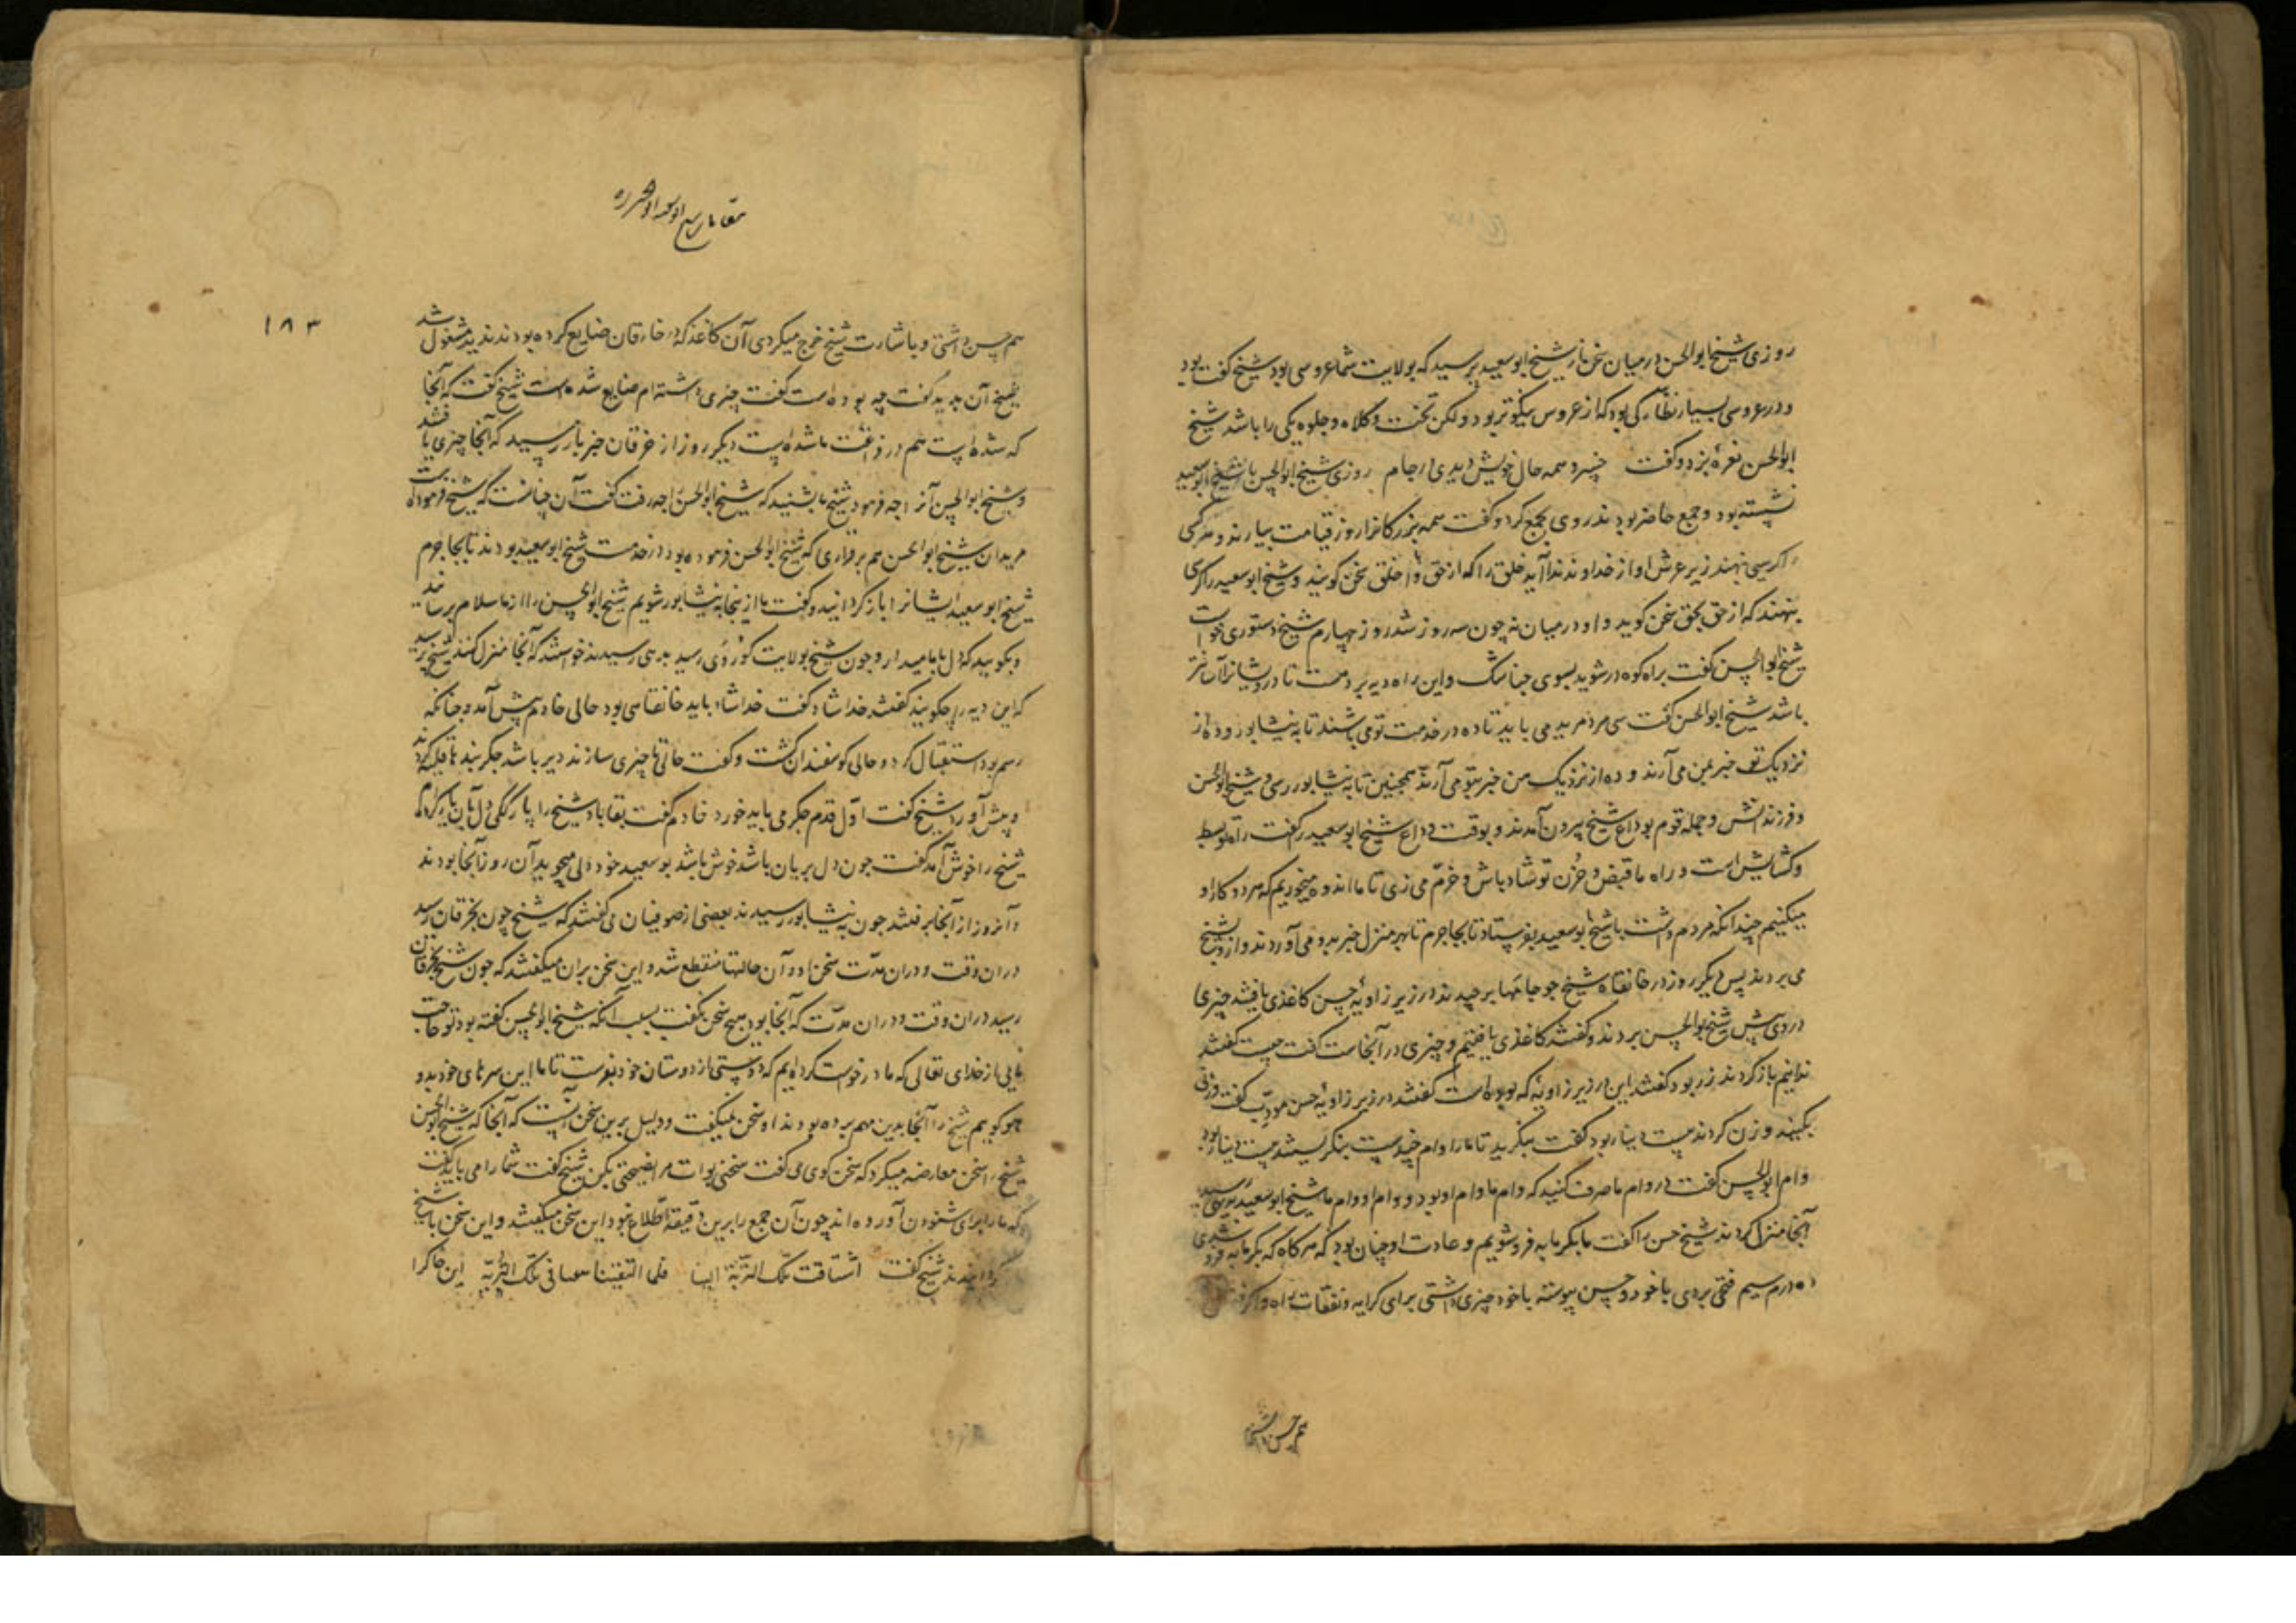 روزی شیخ ابوالحسن در میان سخن از شیخ ابوسعید پرسید که بولایت شما عروسی بود شیخ گفت بود
و در عروسی بسیار نظارکی بود که از عروس نیکوتر بود و لکن تخت و کلاه و جلوه یکی را باشد شیخ
ابوالحسن نعرهٔ بزد و گفت خسرو همه حال خویش دیدی در جام روزی شیخ ابوالحسن با شیخ ابوسعید
نشسته بود و جمع حاضر بودند روی بجمع کرد و گفت همه بزرکانرا روز قیامت بیارند و هرکسی
را کرسی نهند زیر عرش آواز خداوند ندا آید خلق را که از حق با خلق سخن کویند و شیخ ابوسعید را کرسی
بنهند که از حق بحق سخن کوید و او در میان نه چون سه روز شد روز چهارم شیخ دستوری خواست
شیخ ابوالحسن گفت براه کوه در شوید بسوی جناشک و این راه دیه بر دهست تا درویشانرا آسانتر
باشد شیخ ابوالحسن گفت سی مرد مرید می باید تا ده در خدمت تو می باشند تا به نیشابور و ده از
نزدیک تو خبر بمن می آرند و ده از نزدیک من خبر بتو می آرند همچنین تا به نیشابور رسی و شیخ ابوالحسن
و فرزندانش و جمله قوم بوداع شیخ بیرون آمدند و بوقت وداع شیخ ابوسعید را گفت راه تو بسط
و کشایش است و راه ما قبض و حزن تو شاد باش و خرم می زی تا ما اندوه میخوریم که هر دو کار او
میکنیم چندانکه مردم داشت با شیخ بوسعید بفرستاد تا بجاجرم تا بهر منزل خبر بدو می آوردند و از و بشیخ
می بردند پس دیکر روز در خانقاه شیخ جو جامها برچیدند در زیر زاویه حسن کاغذی یافتند چیزی
در وی پیش شیخ ابوالحسن بردند و گفتند کاغذی یافتیم و چیزی در آنجاست گفت چیست گفتند
ندانیم باز کردند زر بود گفتند این در زیر زاویهٔ که بوده است گفتند در زیر زاویهٔ حسن مودب گفت وزنی
بکنید وزن کردند بیست دینار بود گفت بنگرید تا ما را وام چندست بنکریستند بیست دینار بود
وام ابوالحسن گفت در وام ما صرف کنید که وام ما وام او بود و وام او وام ما شیخ ابوسعید
آنجا منزل کردند شیخ حسن را گفت ما بگرمابه فرو شویم و عادت او چنان بود که هرکاه که بگرمابه فرو شدی
ده درم سیم فتحی بردی با خود و حسن پیوسته با خود چیزی داشتی برای کرایه و نفقات راه و اکر
هم حسن داشتی
مقامات شیخ ابوسعید ابوالخیر ره
١٨٣
هم حسن داشتی و باشارت شیخ خرج میکردی آن کاغذ که در خارقان ضایع کرده بودند ندید مشغول شد
شیخ آن بدید گفت چه بوده است گفت چیزی داشته ام ضایع شده است شیخ گفت که آنجا
که شده است هم در ذمّت ما شده است دیکر روز از خرقان خبر باز رسید که آنجا چیزی یافتند
و شیخ ابوالحسن آنرا چه فرمود شیخ ما بشنید که شیخ ابوالحسن را چه رفت گفت آن چنانست که شیخ فرموده است
مریدان شیخ ابوالحسن هم بر قراری که شیخ ابوالحسن فرموده بود در خدمت شیخ ابوسعید بودند تا بجاجرم
شیخ ابوسعید ایشانرا باز کردانید و گفت ما از اینجا به نیشابور شویم شیخ ابوالحسن را از ما سلام برسانید
و بکویید که دل با ما میدار و چون شیخ بولایت رسید بدیهی رسیدند خواستند که آنجا منزل کنند شیخ پرسید
که این دیه را چه کویند گفتند خداشاد گفت خدا شاد باید خانقاهی بود حالی خادم پیش آمد و چنانکه
رسم بود استقبال کرد و حالی کوسفندان کشت و گفت حالی تا چیزی سازند دیر باشد جکر بند تا قلیه کردند
و پیش آورد شیخ گفت اول قدم جکر می باید خورد خادم گفت بقا باد شیخ را پارککی دل بآن یار کرده ام
شیخ را خوش آمد گفت چون دل بریان باشد خوش باشد بوسعید خود دلی میجوید آن روز آنجا بودند
و آنروز از آنجا برفتند چون به نیشابور رسیدند بعضی از صوفیان می گفتند که شیخ چون بخرقان رسید
در آن وقت و در آن مدت سخن او و آن حالتها منقطع شد و این سخن بر آن میگفتند که چون شیخ بخرقان
رسید در آن وقت و در آن مدت که آنجا بود هیچ سخن نگفت بسبب آنکه شیخ ابوالحسن گفته بود تو حاجت
مایی از خدای تعالی که ما درخواست کرده ایم که دوستی از دوستان خود بفرست تا ما این سرهای خود بدو
جو کوییم شیخ را آنجا بدین مهم برده بودند او سخن نمیگفت و دلیل برین سخن آنست که آنجا که شیخ ابوالحسن
شیخ را سخن معارضه میکرد که سخن کوی می گفت سخنی بوات مرا نصیحتی بکن شیخ گفت شما را می باید گفت
که ما را برای شنودن آورده اند چون آن جمع را برین دقیقه اطلاع نبود این سخن میگفتند و این سخن با شیخ
کردانیدند شیخ گفت اشتاقت تلک التربة الینا فلما التقینا معنا فی تلک التربة این خاکرا